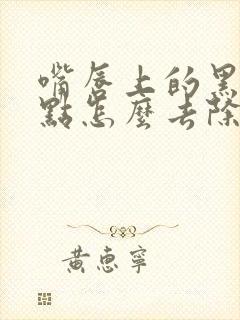 嘴唇上的黑
點怎麼去除
黃惠寧